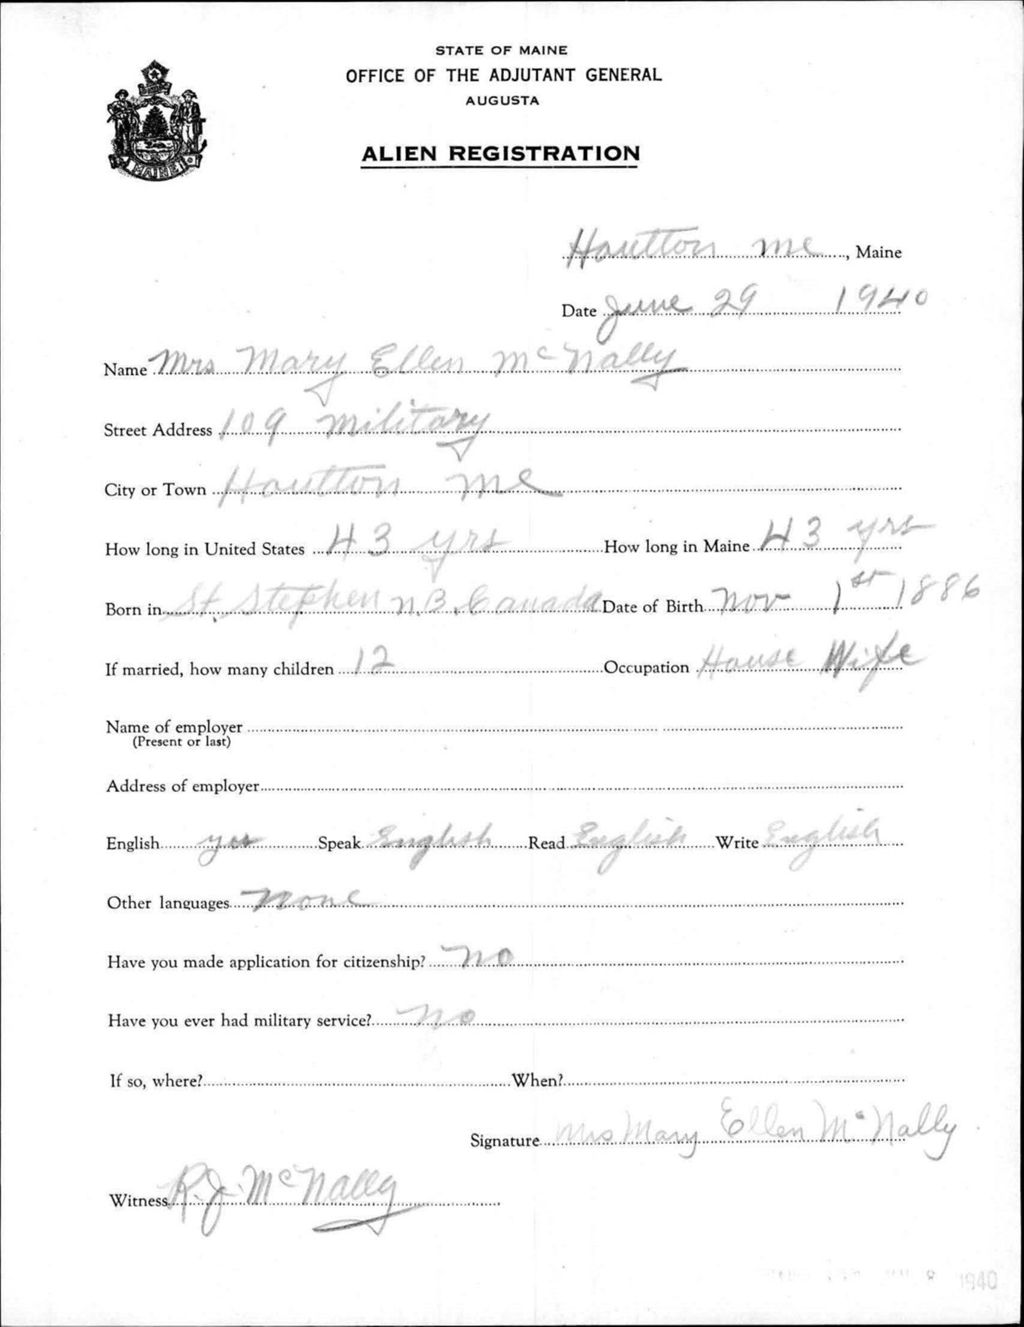 STATE OF MAINE
OFFICE OF THE ADJUTANT GENERAL
AUGUSTA
ALIEN REGISTRATION
MAINE
Houltton Me, Maine
Date June 29 1940
Name Mrs Mary Ellen McNally
Street Address 109 Military
City or Town Houltton Me
How long in United States 43 yrs How long in Maine 43 yrs
Born in St. Stephen N.B. Canada Date of Birth Nov 1st 1886
If married, how many children 12 Occupation House Wife
Name of employer
(Present or last)
Address of employer
English yes Speak English Read English Write English
Other languages None
Have you made application for citizenship? No
Have you ever had military service? No
If so, where? When?
Signature Mrs Mary Ellen McNally
Witness R.J. McNally
8 1940